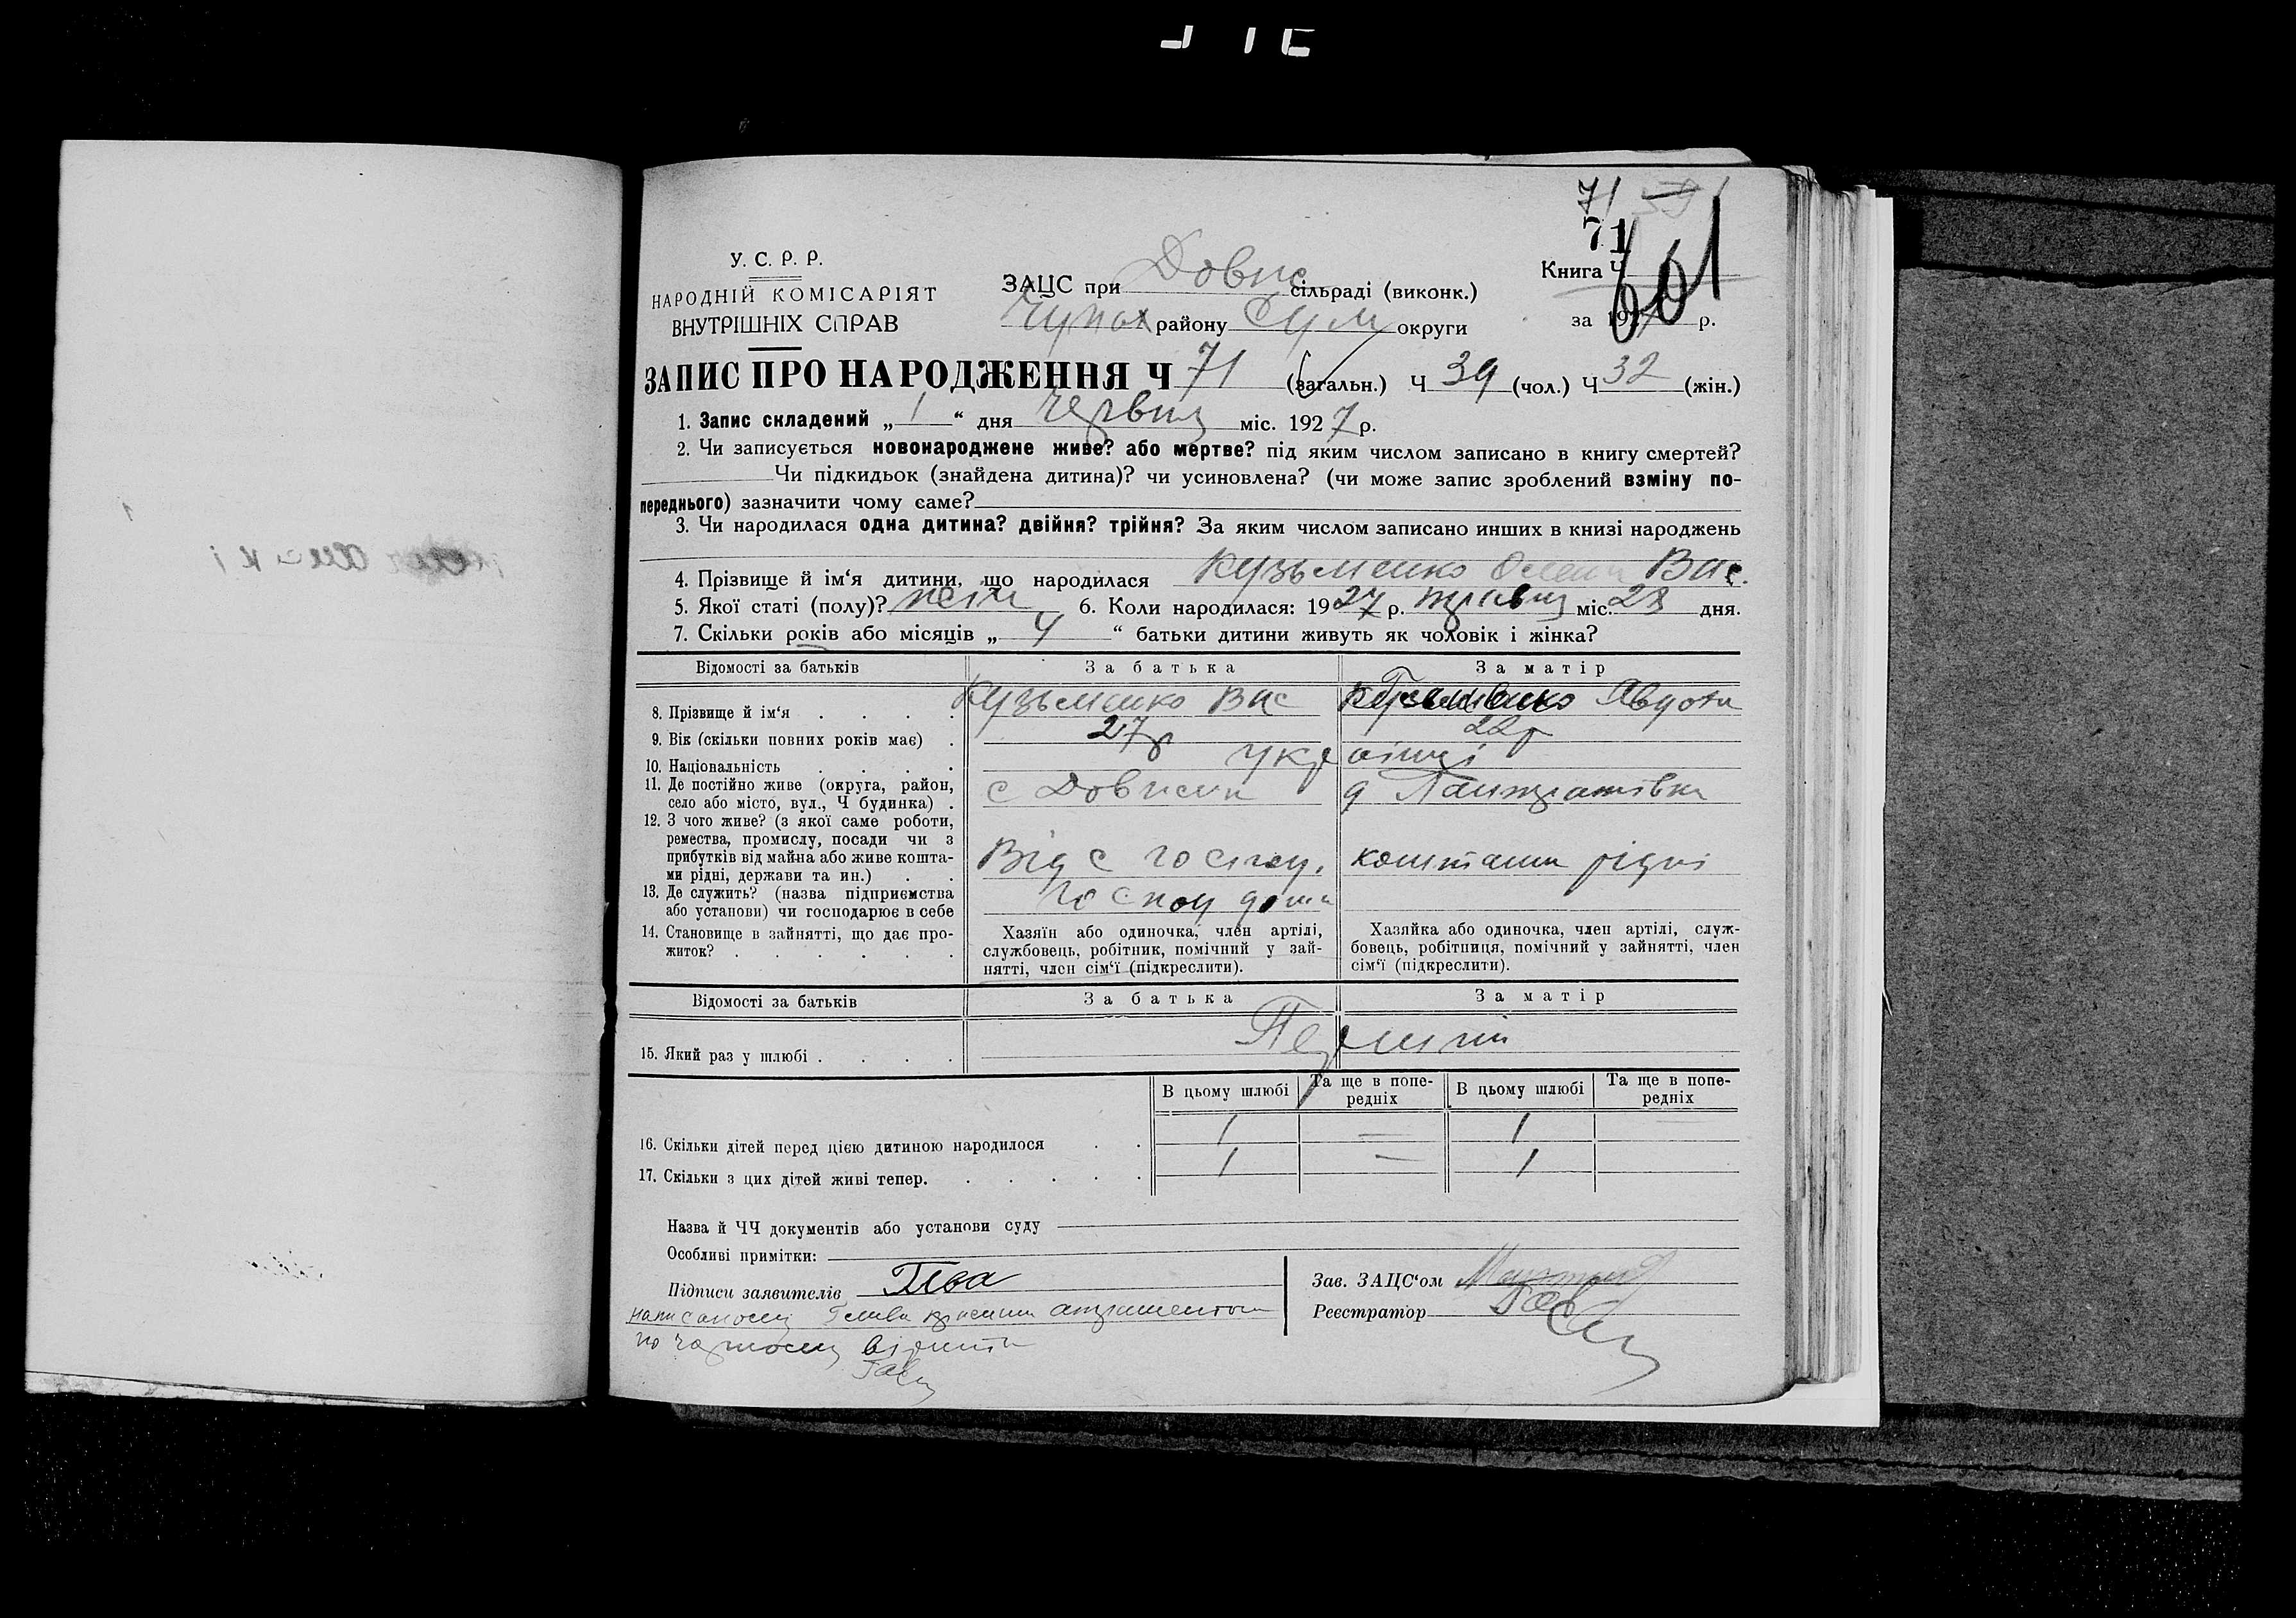 71
71
661
У. С. Р. Р.
НАРОДНІЙ КОМІСАРІЯТ
ВНУТРІШНІХ СПРАВ
ЗАЦС при Довж сільраді (виконк.)
Чупах району Сум округи
Книга Ч
за 1927 р.
ЗАПИС ПРО НАРОДЖЕННЯ Ч 71 (загальн.) Ч 39 (чол.) Ч 32 (жін.)
1. Запис складений „ 1 “ дня червня міс. 1927 р.
2. Чи записується новонароджене живе? або мертве? під яким числом записано в книгу смертей?
Чи підкидьок (знайдена дитина)? чи усиновлена? (чи може запис зроблений взміну по-
переднього) зазначити чому саме?
3. Чи народилася одна дитина? двійня? трійня? За яким числом записано инших в книзі народжень
4. Прізвище й ім‘я дитини, що народилася Кузьменко Олена Вас.
5. Якої статі (полу)? жіноч 6. Коли народилася: 1927 р. травня міс. 28 дня.
7. Скільки років або місяців „ 4 “ батьки дитини живуть як чоловік і жінка?
Відомості за батьків За батька За матір
8. Прізвище й ім‘я Кузьменко Вас Авдотя
9. Вік (скільки повних років має) 27р 22р
10. Національність українці
11. Де постійно живе (округа, район,
село або місто, вул., Ч будинка)
с
12. З чого живе? (з якої саме роботи,
ремества, промислу, посади чи з
прибутків від майна або живе кошта-
ми рідні, держави та ин.)
Від с господ. коштами рідні
13. Де служить? (назва підприємства
або установи) чи господарює в себе
господ дома
14. Становище в зайнятті, що дає про-
житок?
Хазяїн або одиночка, член артілі,
службовець, робітник, помічний у зай-
нятті, член сім‘ї (підкреслити).
Хазяйка або одиночка, член артілі, служ-
бовець, робітниця, помічний у зайнятті, член
сім‘ї (підкреслити).
Відомості за батьків За батька За матір
15. Який раз у шлюбі Перший
В цьому шлюбі Та ще в попе-
редніх В цьому шлюбі Та ще в попе-
редніх
16. Скільки дітей перед цією дитиною народилося 1 — 1
17. Скільки з цих дітей живі тепер. 1 — 1
Назва й ЧЧ документів або установи суду
Особливі примітки:
Підписи заявителів
Зав. ЗАЦС‘ом
Реєстратор
по чорному вірити